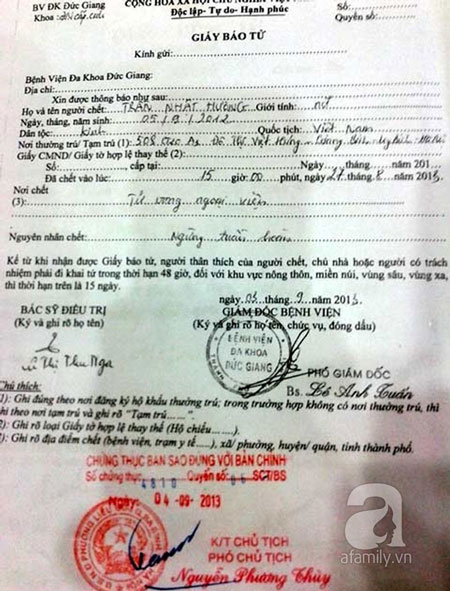 BV ĐK Đức Giang
CỘNG HÒA XÃ HỘI CHỦ NGHĨA VIỆT
Độc lập- Tự do- Hạnh phúc
Số:
Khoa
Quyển số:
GIẤY BÁO TỬ
Kính gửi:
Bệnh Viện Đa Khoa Đức Giang:
Địa chỉ:
Xin được thông báo như sau:
Họ và tên người chết: TRẦN NHẬT HƯƠNG Giới tính: nữ
Ngày, tháng, năm sinh: 05 / 3 / 2012
Dân tộc: Kinh Quốc tịch: Việt Nam
Nơi thường trú/ Tạm trú (1): 508 Đô Thị Việt Hưng
Giấy CMND/ Giấy tờ hợp lệ thay thế (2):
Số: , cấp tại: Ngày tháng năm 201
Đã chết vào lúc: 15 giờ 00 phút, ngày 27 tháng 8 năm 2013
Nơi chết
(3): Tử vong ngoại viện
Nguyên nhân chết: Ngừng tuần hoàn
Kể từ khi nhận được Giấy báo tử, người thân thích của người chết, chủ nhà hoặc người có trách
nhiệm phải đi khai tử trong thời hạn 48 giờ, đối với khu vực nông thôn, miền núi, vùng sâu, vùng xa,
thì thời hạn trên là 15 ngày.
ngày 03 tháng 9 năm 2013
BÁC SỸ ĐIỀU TRỊ
GIÁM ĐỐC BỆNH VIỆN
(Ký và ghi rõ họ tên)
(Ký và ghi rõ họ tên chức vụ, đóng dấu)
BỆNH VIỆN
ĐA KHOA
ĐỨC GIANG
PHÓ GIÁM ĐỐC
Thị Thu Nga
Bs. Lê Anh Tuấn
Chú thích:
(1): Ghi đúng theo nơi đăng ký hộ khẩu thường trú; trong trường hợp không có nơi thường trú, thì
ghi theo nơi tạm trú và ghi rõ “Tạm trú......”.
(2): Ghi rõ loại Giấy tờ hợp lệ thay thế (Hộ chiếu.......).
(3): Ghi rõ địa điểm chết (bệnh viện, trạm y tế.....), xã/ phường, huyện/ quận, tỉnh thành phố.
CHỨNG THỰC BẢN SAO ĐÚNG VỚI BẢN CHÍNH
Số chứng thực: 4810 Quyển số: SCT/BS
Ngày: 04 -09- 2013
K/T CHỦ TỊCH
PHÓ CHỦ TỊCH
Nguyễn Phương Thùy
afamily.vn